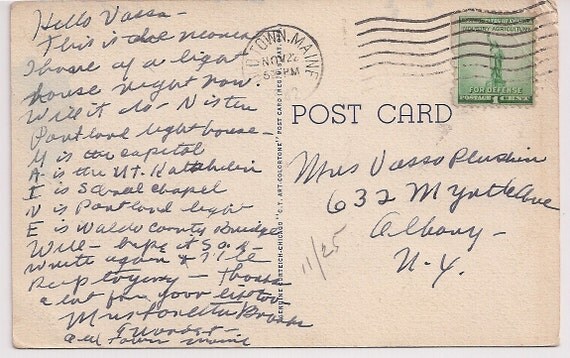 Hello Vassa-
This is the nearest
I have of a light
house right now.
Will it do- N is the
Portland light house-
M is the capitol
A is the Mt. Katahdin
I is School chapel
N is Portland light
E is Waldo County Bridge
Well- hope it's O.K.
write again & I'll
Reply to you- Thanks
a lot for your
Mrs Loretta
Old Town Maine
OLD TOWN, MAINE
NOV 22
5 PM
POST CARD
UNITED STATES OF AMERICA
INDUSTRY AGRICULTURE
FOR DEFENSE
POSTAGE 1 CENT
GENUINE CURTEICH-CHICAGO "C.T. ART-COLORTONE" POST CARD (REG. U.S. PAT. OFF.)
Mrs Vassa
632 Myrtle Ave
Albany-
N.Y.
11/25